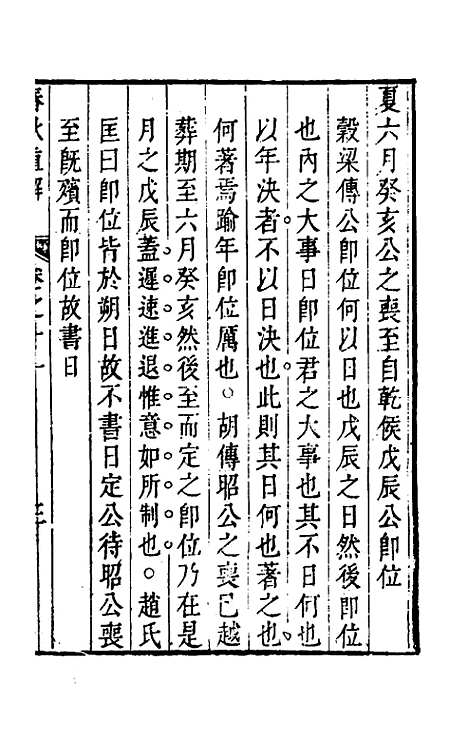 夏六月癸亥公之喪至自乾侯戊辰公卽位
穀梁傳公卽位何以日也戊辰之日然後卽位
也內之大事日卽位君之大事也其不日何也
以年決者不以日決也此則其日何也著之也
何著焉踰年卽位厲也○胡傳昭公之喪已越
葬期至六月癸亥然後至而定之卽位乃在是
月之戊辰蓋遲速進退惟意如所制也○趙氏
匡曰卽位皆於朔日故不書日定公待昭公喪
至旣殯而卽位故書日
春秋直解 卷之十一